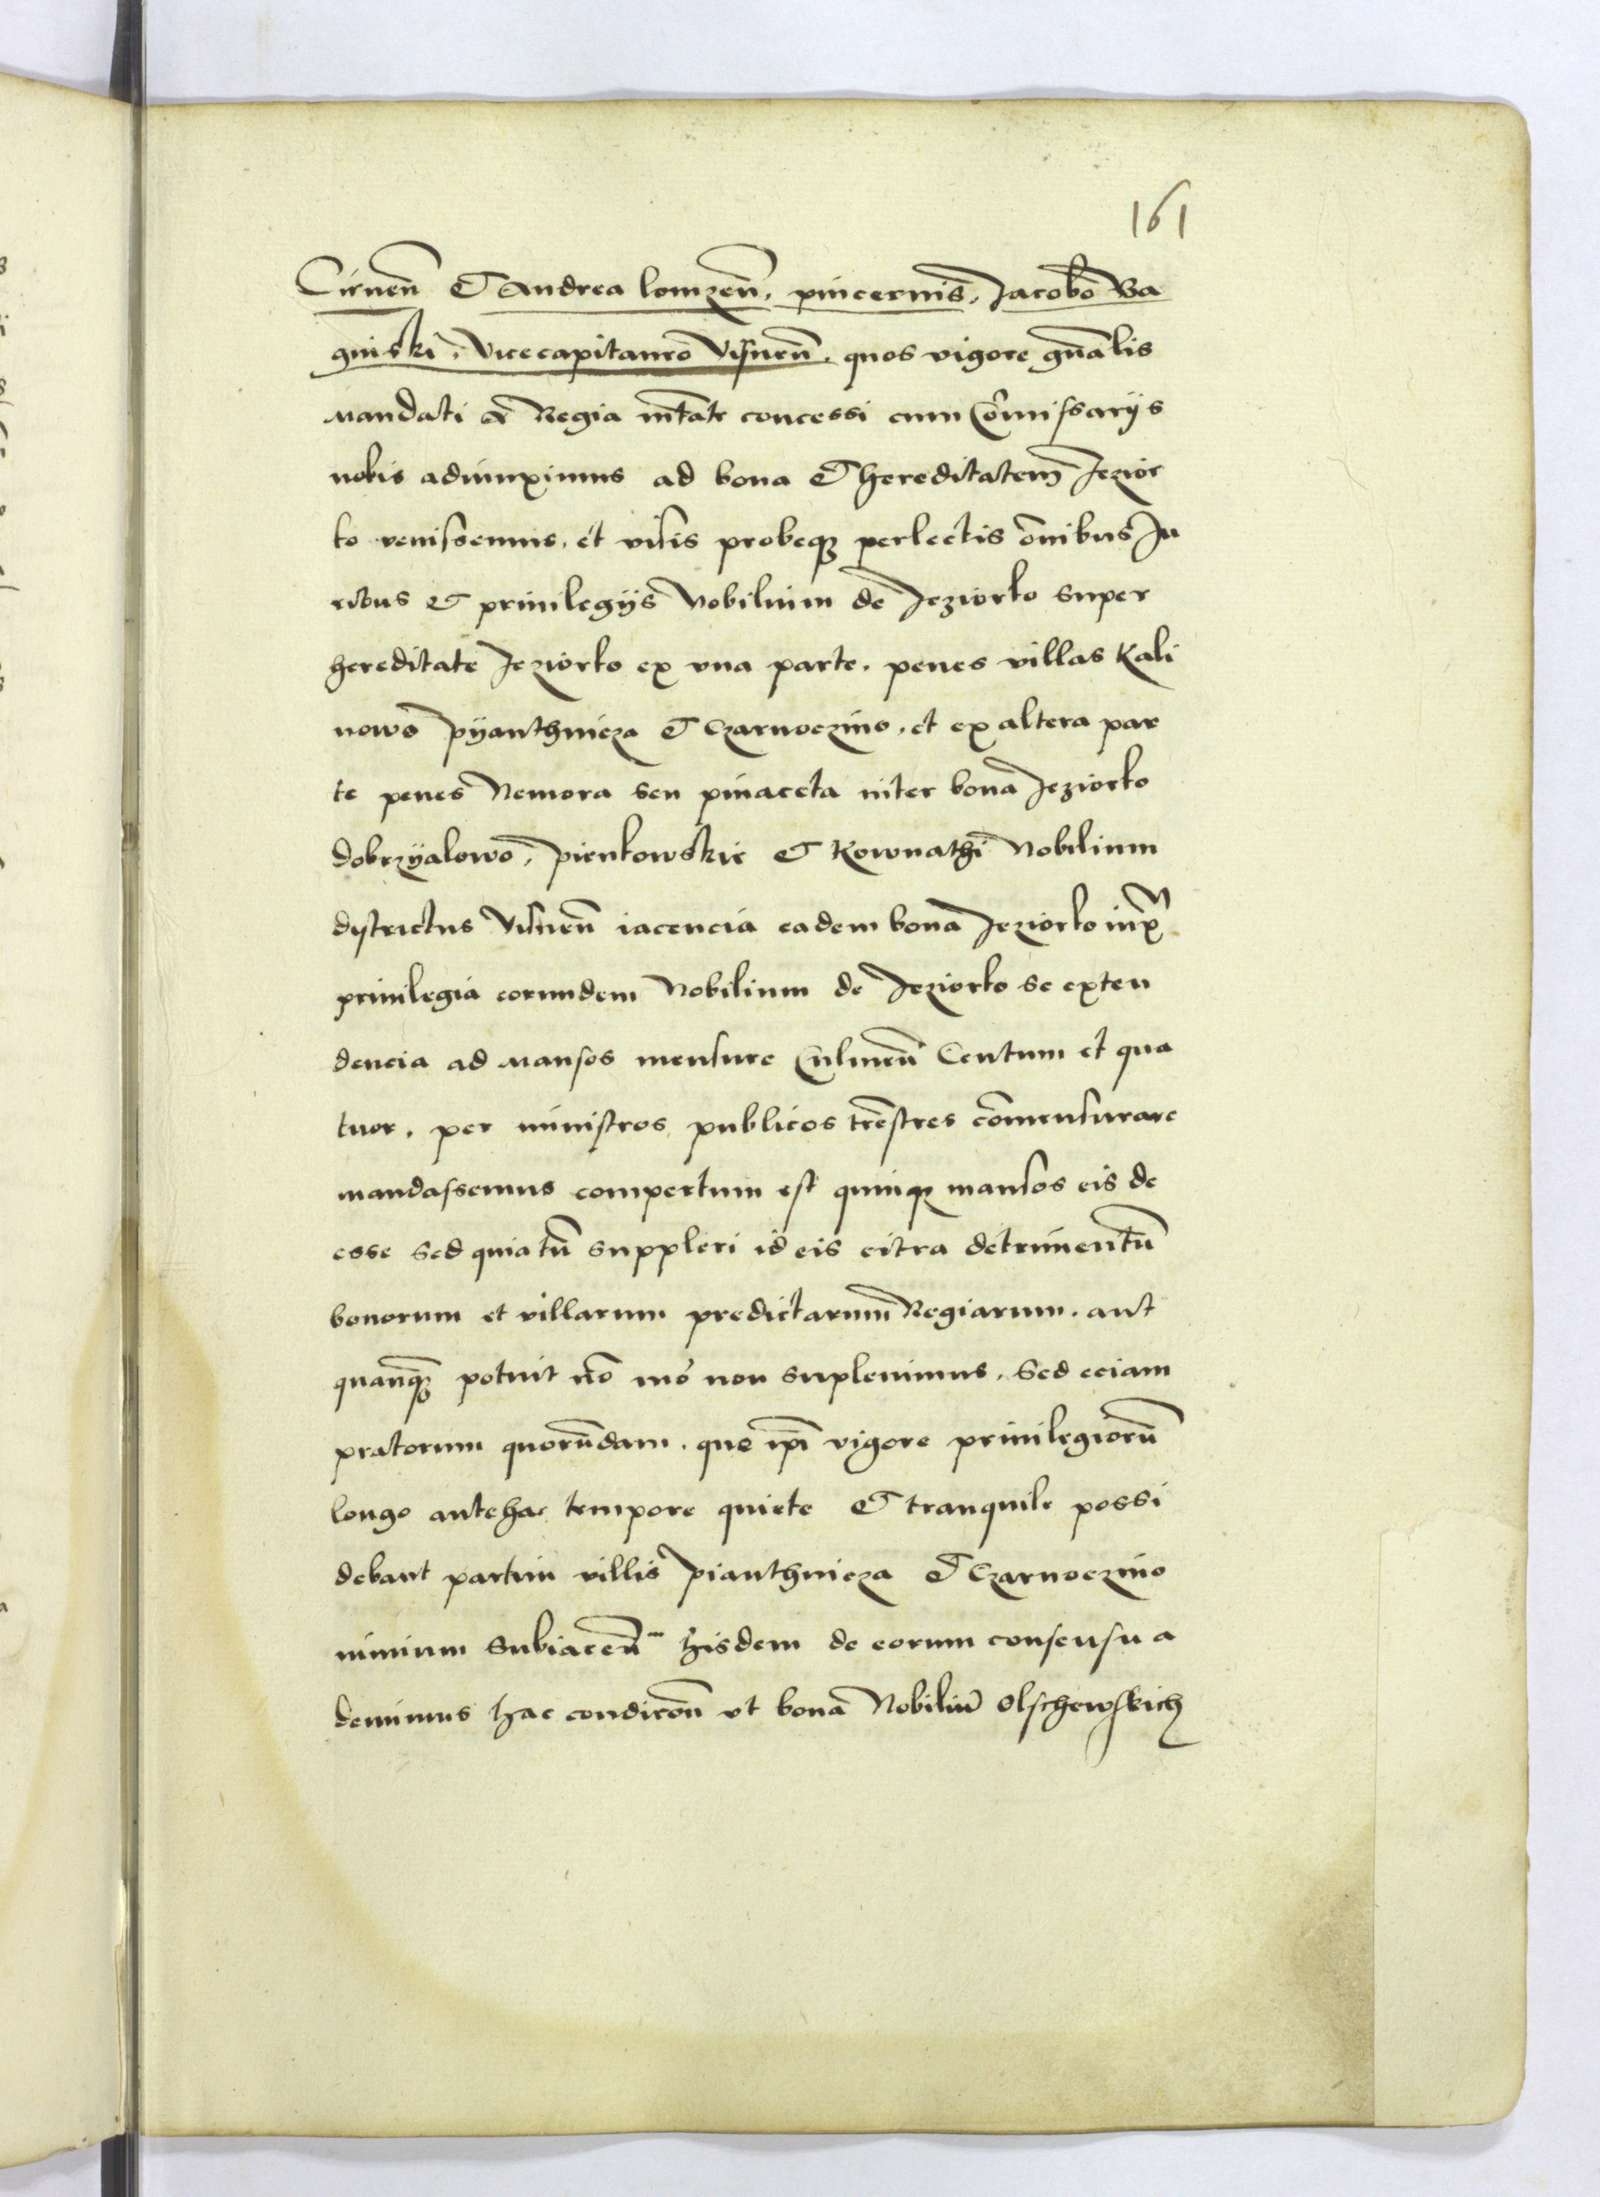 161
Cirneñ Et Andrea lomzeñ. pincernis. Jacobo Wa
gniski. Vicecapitaneo Visneñ. quos vigore gn̄alis
Mandati a Regia mtāte concessi cum Cōmissarijs
nobis adiunximus ad bona Et hereditatem Jezior
ko venissemus. et visis probeqꝫ perlectis ōnibus Ju
ribus Et priuilegijs Nobilium de Jeziorko super
hereditate Jeziorko ex vna parte. penes villas Kali
nowo pÿanthnicza Et Czarnoczino. et ex altera par
te penes Nemora seu pinaceta inter bona Jeziorko
dobrzÿalowo, pienkowskie Et Kownathi Nobilium
districtus Visneñ iacencia eadem bona Jeziorko iuxᵃ
priuilegia eorundem Nobilium de Jeziorko se exten
dencia ad Mansos mensure Culmeñ Centum et qua
tuor. per ministros publicos tr̄estres cōmensurare
mandassemus compertum est quinqꝫ mansos eis de
esse Sed quia tn̄ suppleri id eis citra detrimentū
bonorum et villarum predictarum Regiarum. aut
quanqꝫ potuit nō mō non supleuimus. Sed eciam
pratorum quorūdam. que ip̄i vigore priuilegiorū
longo antehac tempore quiete Et tranquile possi
debant partim villis pianthnicza Et Czarnoczino
nimium Subiaceñ hisdem de eorum consensu a
demimus hac condicōn vt bona Nobiliū Olschewskich